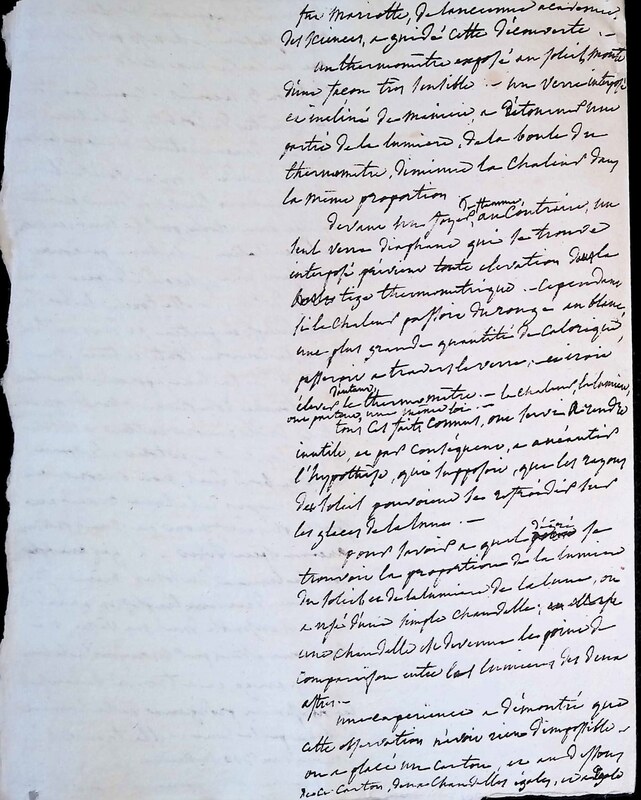 fut mariotte, de l'ancienne academie
des sciences, a guidé cette découverte. —
un thermomètre exposé au soleil, monte
d'une façon tres sensible — un verre interposé
et incliné de maniere, a détourner une
partie de la lumiere, de la boule du
thermomètre, diminue la chaleur dans
la même proportion
devant un foyer de flamme, au contraire, un
seul verre diaphane qui se trouve
interposé prévient toute elevation dans la
tige thermometrique. — cependant
si la chaleur passoit du rouge au blanc
une plus grande quantité de calorique
passeroit a travers le verre, et iroit
élever d'autant le thermomètre. — la chaleur la lumiere,
ont partout, une même loi. —
tous ces faits connus, ont servi a rendre
inutile, et par conséquent, a anéantir
l'hypothèse, qui supposoit, que les rayons
du soleil pouvoient se refroidir sur
les glaces de la lune. —
pour savoir a quel dégré se
trouvoit la proportion de la lumiere
du soleil et de la lumiere de la lune, on
a usé d'une simple chandelle;
une chandelle est devenue le point de
comparaison entre les lumieres des deux
astres. —
une experience a démontré que
cette observation n'avoit rien d'impossible —
on a placé un carton, et au dessous
de ce carton, deux chandelles égales, et a égale